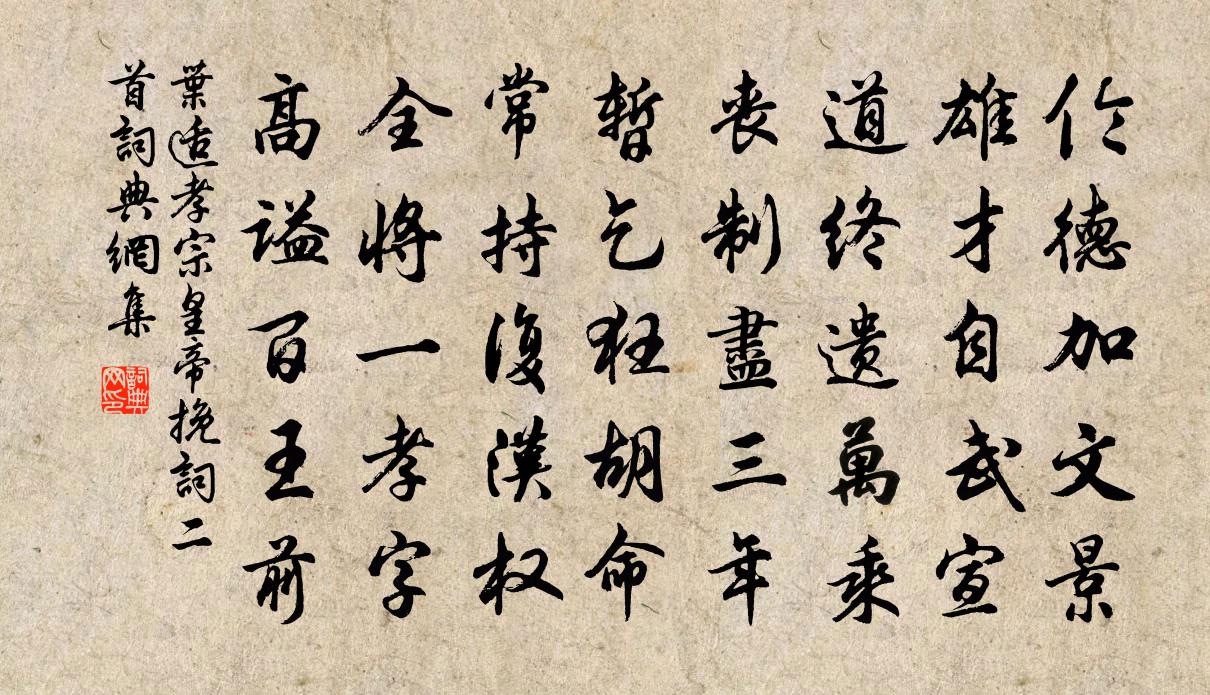 俭德加文景
雄才自武宣
道終遺萬乘
喪制盡三年
暫乞狂胡命
常持復漢权
全將一孝字
高謚百王前
葉适孝宗皇帝挽詞二
首詞典網集
詞典
网印